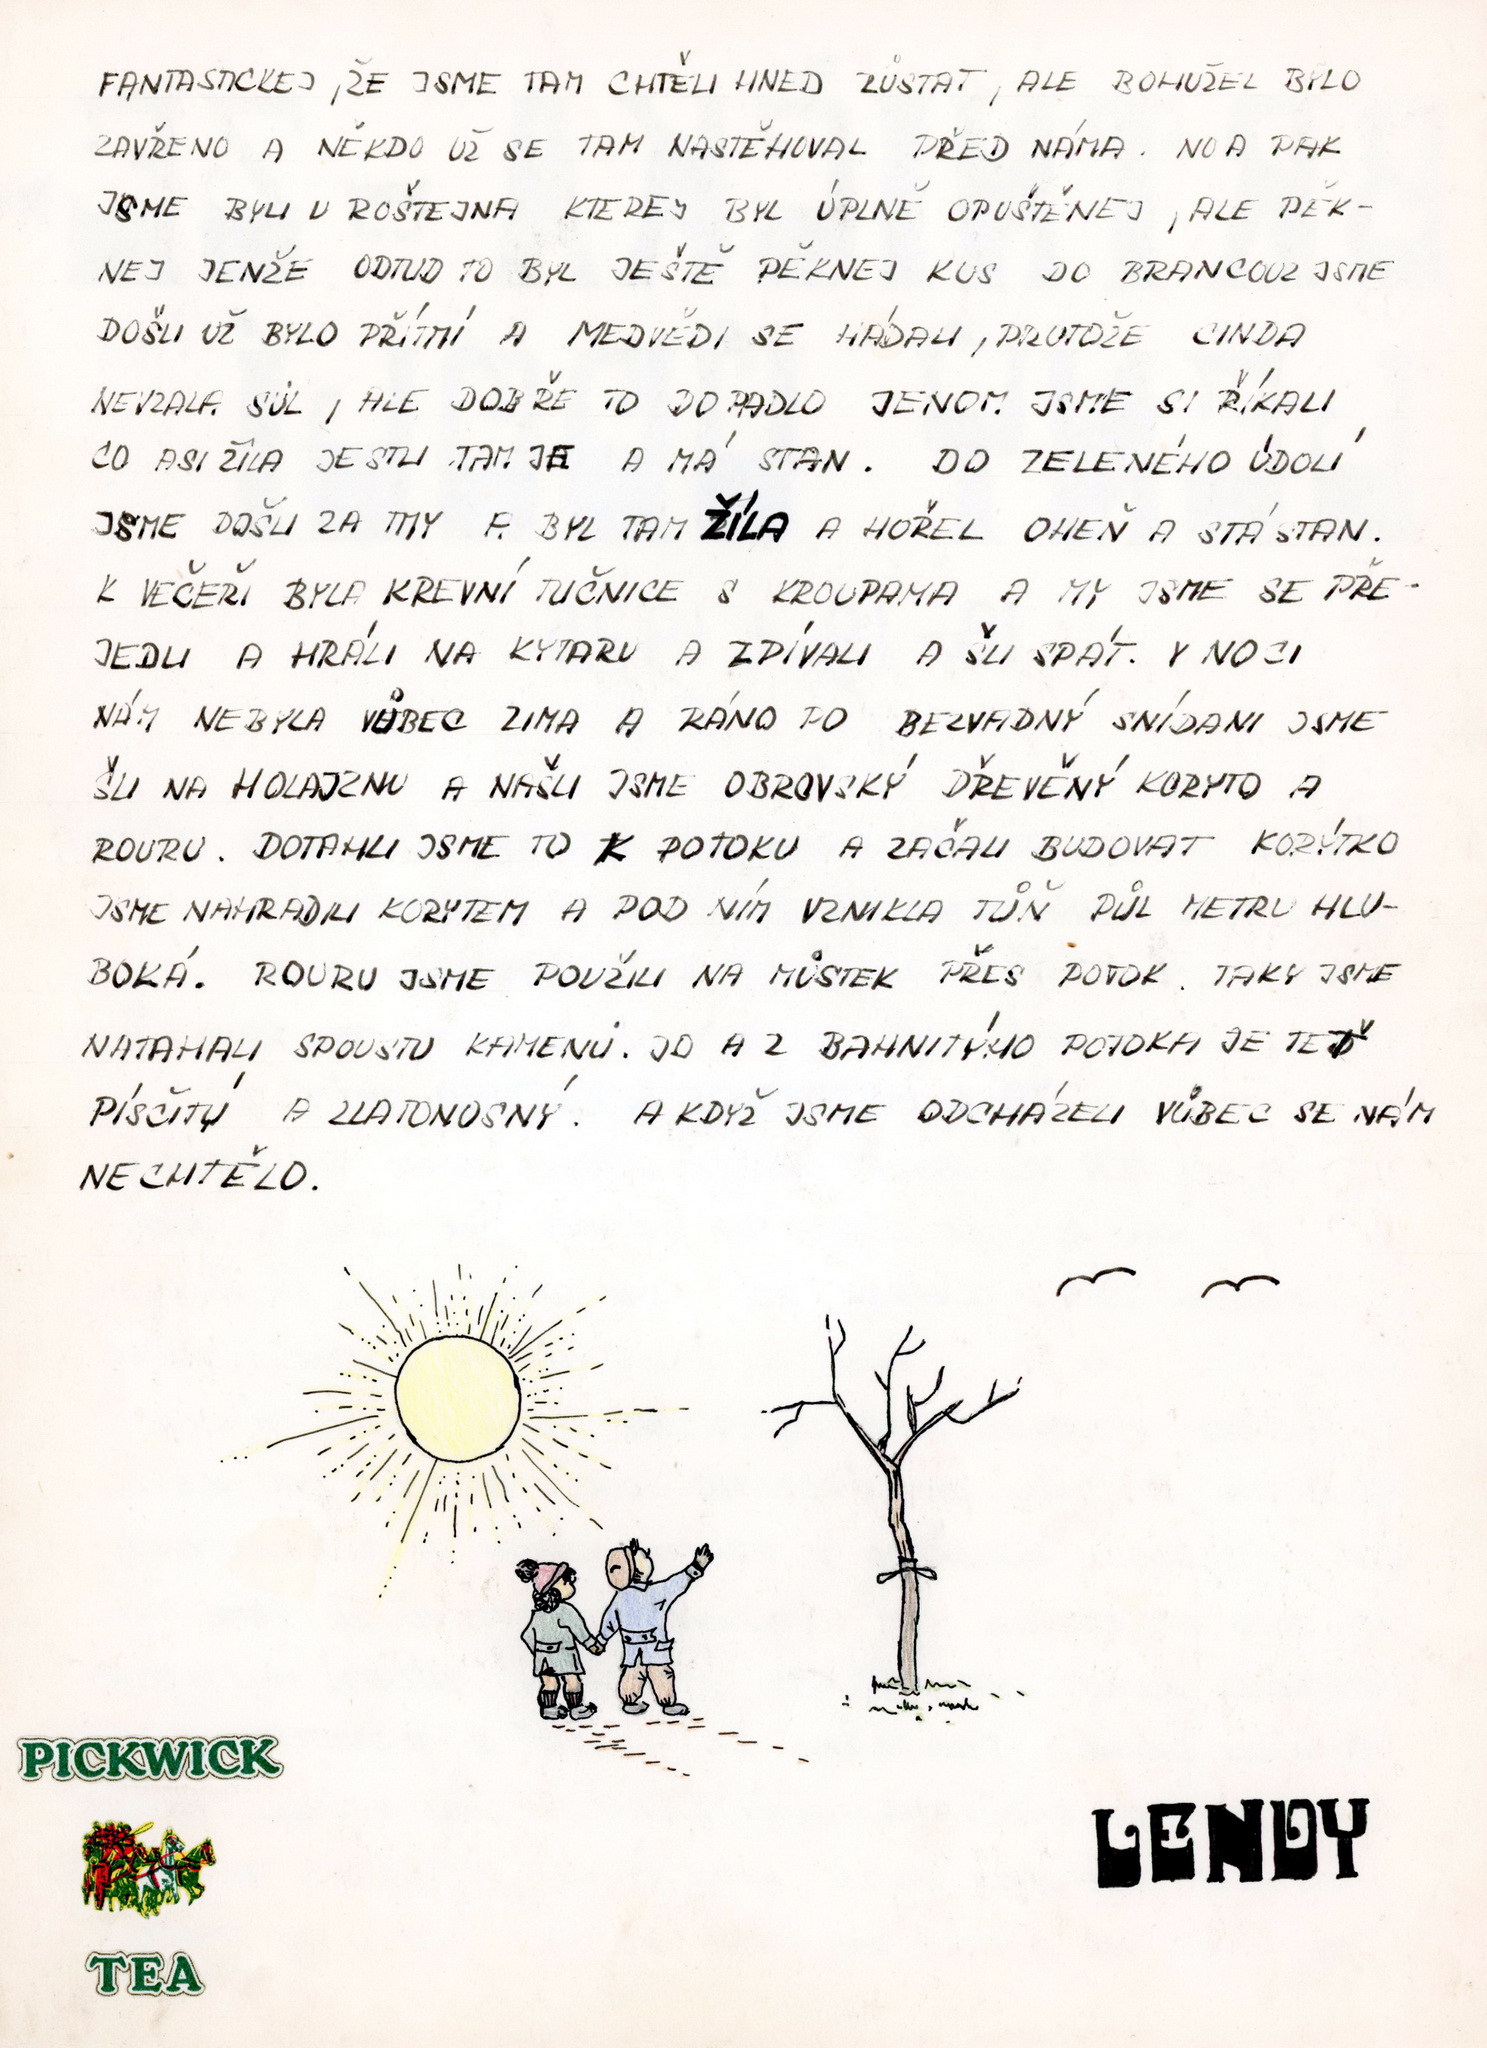 FANTASTICKEJ, ŽE JSME TAM CHTĚLI HNED ZŮSTAT, ALE BOHUŽEL BYLO
ZAVŘENO A NĚKDO UŽ SE TAM NASTĚHOVAL PŘED NÁMA. NO A PAK
JSME BYLI U ROŠTEJNA KTEREJ BYL ÚPLNĚ OPUŠTĚNEJ, ALE PĚK-
NEJ JENŽE ODTUD TO BYL JEŠTĚ PĚKNEJ KUS DO BRANCOUZ JSME
DOŠLI UŽ BYLO PŘÍTMÍ A MEDVĚDI SE HÁDALI, PROTOŽE CINDA
NEVZALA SŮL, ALE DOBŘE TO DOPADLO JENOM JSME SI ŘÍKALI
CO ASI ŽÍLA JESTLI TAM JE A MÁ STAN. DO ZELENÉHO ÚDOLÍ
JSME DOŠLI ZA TMY A BYL TAM ŽÍLA A HOŘEL OHEŇ A STÁ STAN.
K VEČEŘI BYLA KREVNÍ TUČNICE S KROUPAMA A MY JSME SE PŘE-
JEDLI A HRÁLI NA KYTARU A ZPÍVALI A ŠLI SPÁT. V NOCI
NÁM NEBYLA VŮBEC ZIMA A RÁNO PO BEZVADNÝ SNÍDANI JSME
ŠLI NA HOLAJZNU A NAŠLI JSME OBROVSKÝ DŘEVĚNÝ KORYTO A
ROURU. DOTAHLI JSME TO K POTOKU A ZAČALI BUDOVAT KORÝTKO
JSME NAHRADILI KORYTEM A POD NÍM VZNIKLA TŮŇ PŮL METRU HLU-
BOKÁ. ROURU JSME POUŽILI NA MŮSTEK PŘES POTOK. TAKY JSME
NATAHALI SPOUSTU KAMENŮ. JO A Z BAHNITÝHO POTOKA JE TEĎ
PÍSČITÝ A ZLATONOSNÝ. A KDYŽ JSME ODCHÁZELI VŮBEC SE NÁM
NECHTĚLO.
PICKWICK
TEA
LENDY